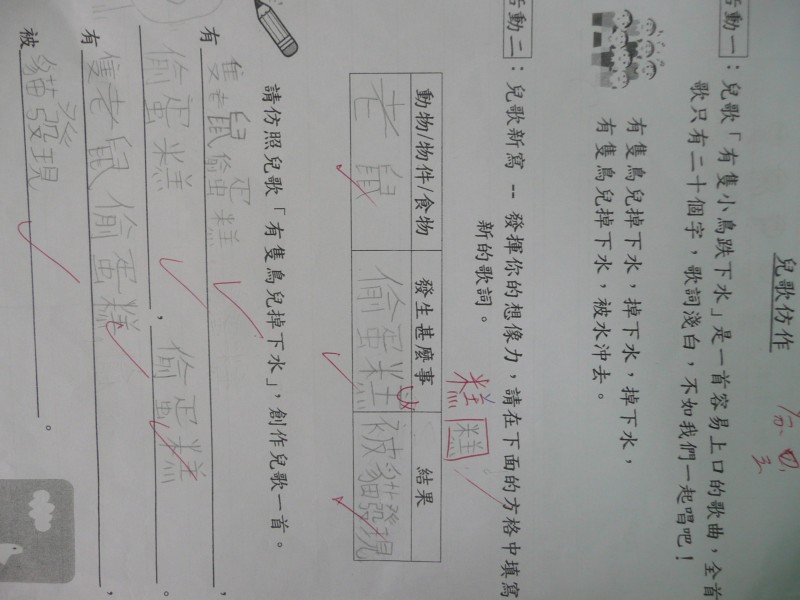 兒歌仿作
活動一：兒歌「有隻小鳥跌下水」是一首容易上口的歌曲，全首
歌只有二十個字，歌詞淺白，不如我們一起唱吧！
有隻鳥兒掉下水，掉下水，掉下水，
有隻鳥兒掉下水，被水沖去。
活動二：兒歌新寫 -- 發揮你的想像力，請在下面的方格中填寫
新的歌詞。
糕 糕
動物/物件/食物 發生甚麼事 結果
老鼠 偷蛋糕 被貓發現
請仿照兒歌「有隻鳥兒掉下水」，創作兒歌一首。
有隻老鼠偷蛋糕，
偷蛋糕，偷蛋糕。
有隻老鼠偷蛋糕，
被貓發現。